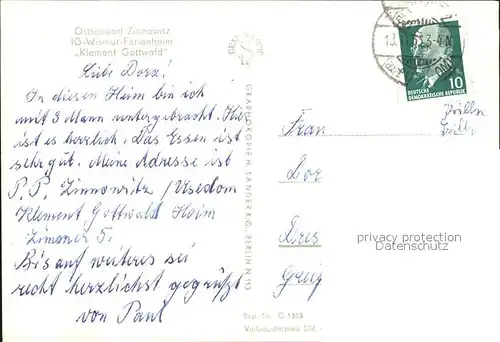 Ostseebad Zinnowitz
IG-Wismut-Ferienheim
„Klement Gottwald"
Liebe Dora!
In diesen Heim bin ich
mit 3 Mann untergebracht. Hier
ist es herrlich. Das Essen ist
sehr gut. Meine Adresse ist
P.P. Zinnowitz/Usedom
Klement Gottwald Heim
Zimmer 5.
Bis auf weiteres sei
recht herzlichst gegrüßt
von Paul
GRAPHOKOPIE H. SANDER K.G., BERLIN N 113
Best. Nr. G 1303
Verbraucherpreis DM
DEUTSCHE
DEMOKRATISCHE REPUBLIK
10
Frau
Dor
Dres
Greiz
privacy protection
Datenschutz